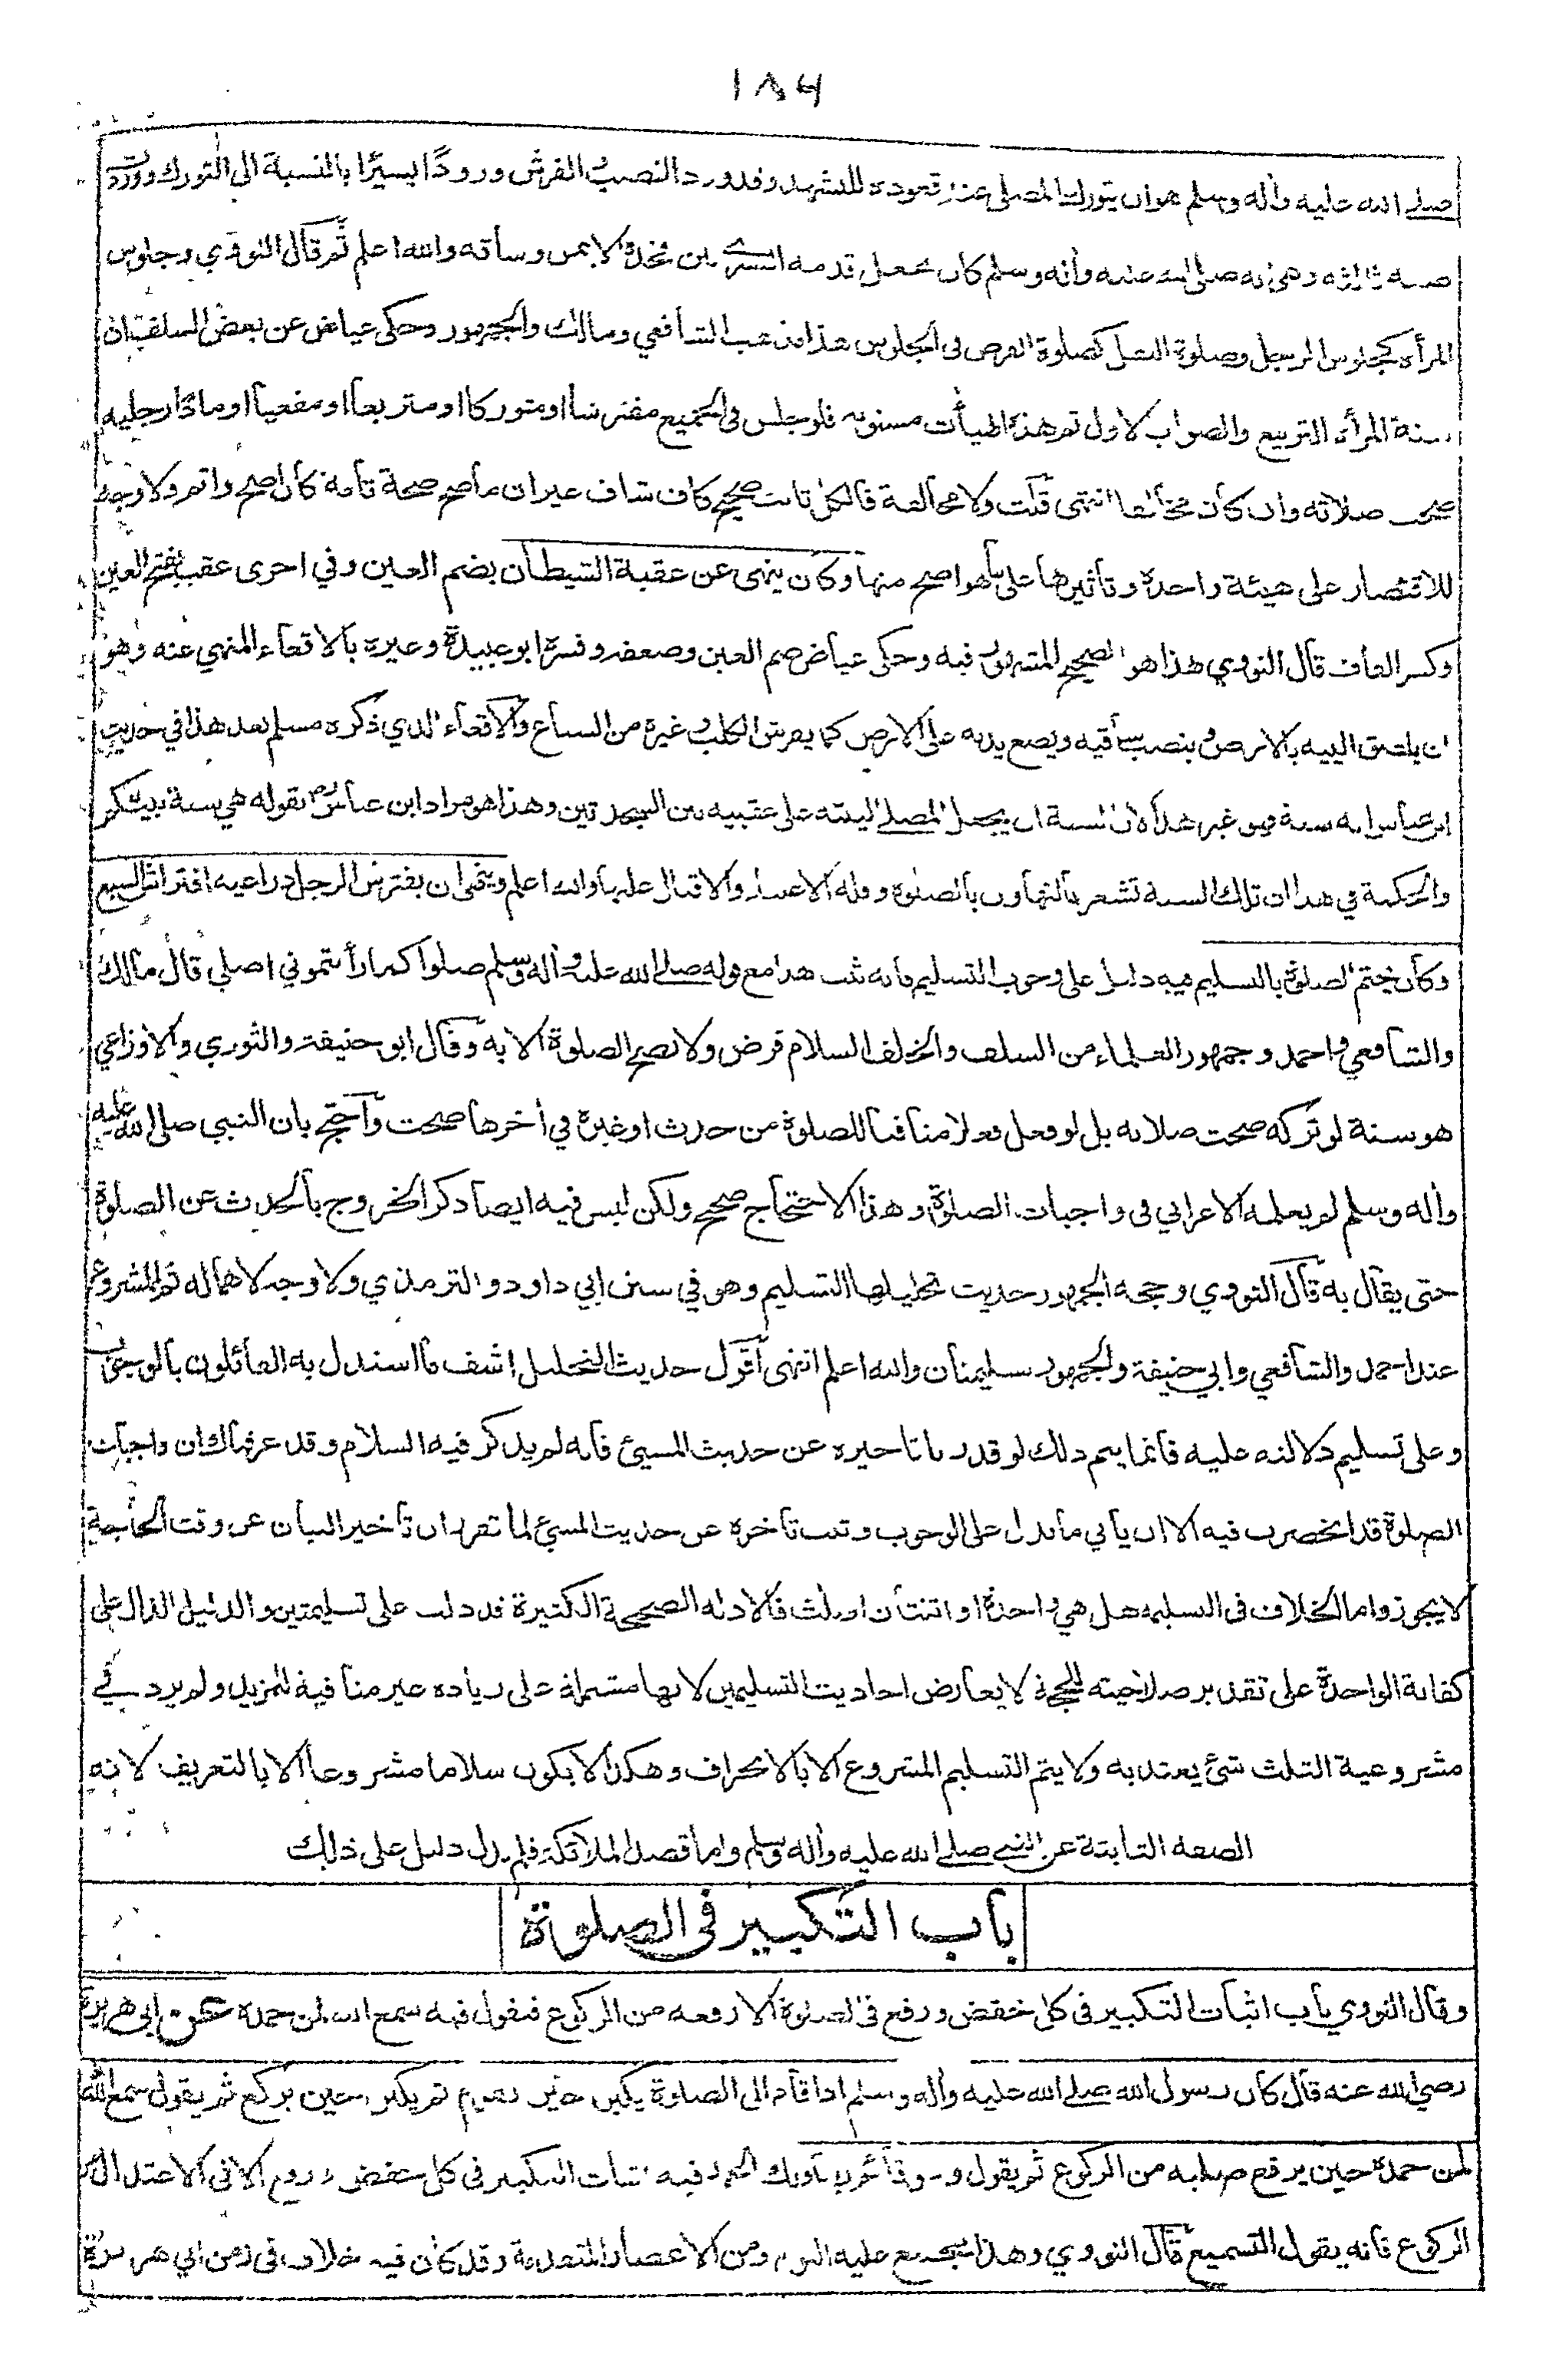 ١٨٦
صلى الله عليه وأله وسلم هو ان يتورك المصلى عند قعوده للتشهد وقد ورد النصب والفرش ورودًا يسيرًا بالنسبة الى التورك ووردت
صفة ثالثة وهي انه صلى الله عليه وأله وسلم كان يجعل قدمه اليسرى بين فخذه الايمن وساقه والله اعلم ثم قال النووي وجلوس
المرأة كجلوس الرجل وصلوة النفل كصلوة الفرض فى الجلوس هذا مذهب الشافعي ومالك والجمهور وحكى عياض عن بعض السلف ان
سنة المرأة التربيع والصواب الاول ثم هذه الهيأت مسنونة فلو جلس فى الجميع مفترشا او متوركا او متربعا او مقعيا او مادًا رجليه
صحت صلاته وان كان مخالفا انتهى قلت ولا مخالفة فالكل ثابت صحيح كاف شاف غير ان ما صح صحة تامة كان اصح واتم ولا وجه
للاقتصار على هيئة واحدة وتأثيرها على ما هو اصح منها وكان ينهى عن عقبة الشيطان بضم العين وفي اخرى عقب بفتح العين
وكسر القاف قال النووي هذا هو الصحيح المشهور فيه وحكى عياض ضم العين وضعفه وفسره ابو عبيدة وغيره بالاقعاء المنهي عنه وهو
ان يلصق الييه بالارض وينصب ساقيه ويضع يديه على الارض كما يفرش الكلب وغيره من السباع والاقعاء الذي ذكره مسلم بعد هذا في حديث
ابن عباس انه سنة فهو غير هذا لان السنة ان يجعل المصلي اليته على عقبيه بين السجدتين وهذا هو مراد ابن عباس بقوله هي سنة نبيكم
والحكمة في هذا ان تلك السنة تشعر بالتهاون بالصلوة وقلة الاعتداد والاقبال عليها والله اعلم وينهى ان يفترش الرجل ذراعيه افتراش السبع
وكان يختم الصلوة بالتسليم فيه دليل على وجوب التسليم فانه ثبت هذا مع قوله صلى الله عليه وأله وسلم صلوا كما رأيتموني اصلي قال مالك
والشافعي واحمد وجمهور العلماء من السلف والخلف السلام فرض ولا تصح الصلوة الا به وقال ابو حنيفة والثوري والاوزاعي
هو سنة لو تركه صحت صلاته بل لو فعل فعلا منافيا للصلوة من حدث او غيره في أخرها صحت واحتج بان النبي صلى الله عليه
وأله وسلم لم يعلمه الاعرابي فى واجبات الصلوة وهذا الاحتجاج صحيح ولكن ليس فيه ايضا ذكر الخروج بالحدث عن الصلوة
حتى يقال به قال النووي وحجة الجمهور حديث تحليلها التسليم وهو في سنن ابي داود والترمذي ولا وجه لاهماله ثم المشروع
عند احمد والشافعي وابي حنيفة والجمهور تسليمتان والله اعلم انتهى اقول حديث التحليل اشف ما استدل به القائلون بالوجوب
وعلى تسليم دلالته عليه فانما يتم ذلك لو قدرنا تاخيره عن حديث المسيئ فانه لم يذكر فيه السلام وقد عرفناك ان واجبات
الصلوة قد انحصرت فيه الا ان يأتي ما يدل على الوجوب وثبت تأخره عن حديث المسئ لما تقرر ان تأخير البيان عن وقت الحاجة
لا يجوز واما الخلاف فى التسليم هل هي واحدة او اثنتان او ثلث فالادلة الصحيحة الكثيرة قد دلت على تسليمتين والدليل الدال على
كفاية الواحدة على تقدير صلاحيته للحجية لا يعارض احاديث التسليمتين لانها مشتملة على زيادة غير منافية للمزيد ولم يرد في
مشروعية الثلث شئ يعتد به ولا يتم التسليم المشروع الا بالانحراف وهكذا لا يكون سلاما مشروعا الا بالتعريف لانه
الصفة الثابتة عن النبي صلى الله عليه وأله وسلم واما قصد الملائكة فلم يدل دليل على ذلك
باب التكبير فى الصلوة
وقال النووي باب اثبات التكبير فى كل خفض ورفع فى الصلوة الا رفعه من الركوع فيقول فيه سمع الله لمن حمده عن ابى هريرة
رضي الله عنه قال كان رسول الله صلى الله عليه وأله وسلم اذا قام الى الصلوة يكبر حين يقوم ثم يكبر حين يركع ثم يقول سمع الله
لمن حمده حين يرفع صلبه من الركوع ثم يقول وهو قائم ربنا ولك الحمد فيه اثبات التكبير فى كل خفض ورفع الا فى الاعتدال من
الركوع فانه يقول التسميع قال النووي وهذا مجمع عليه اليوم ومن الاعصار المتقدمة وقد كان فيه خلاف فى زمن ابي هريرة